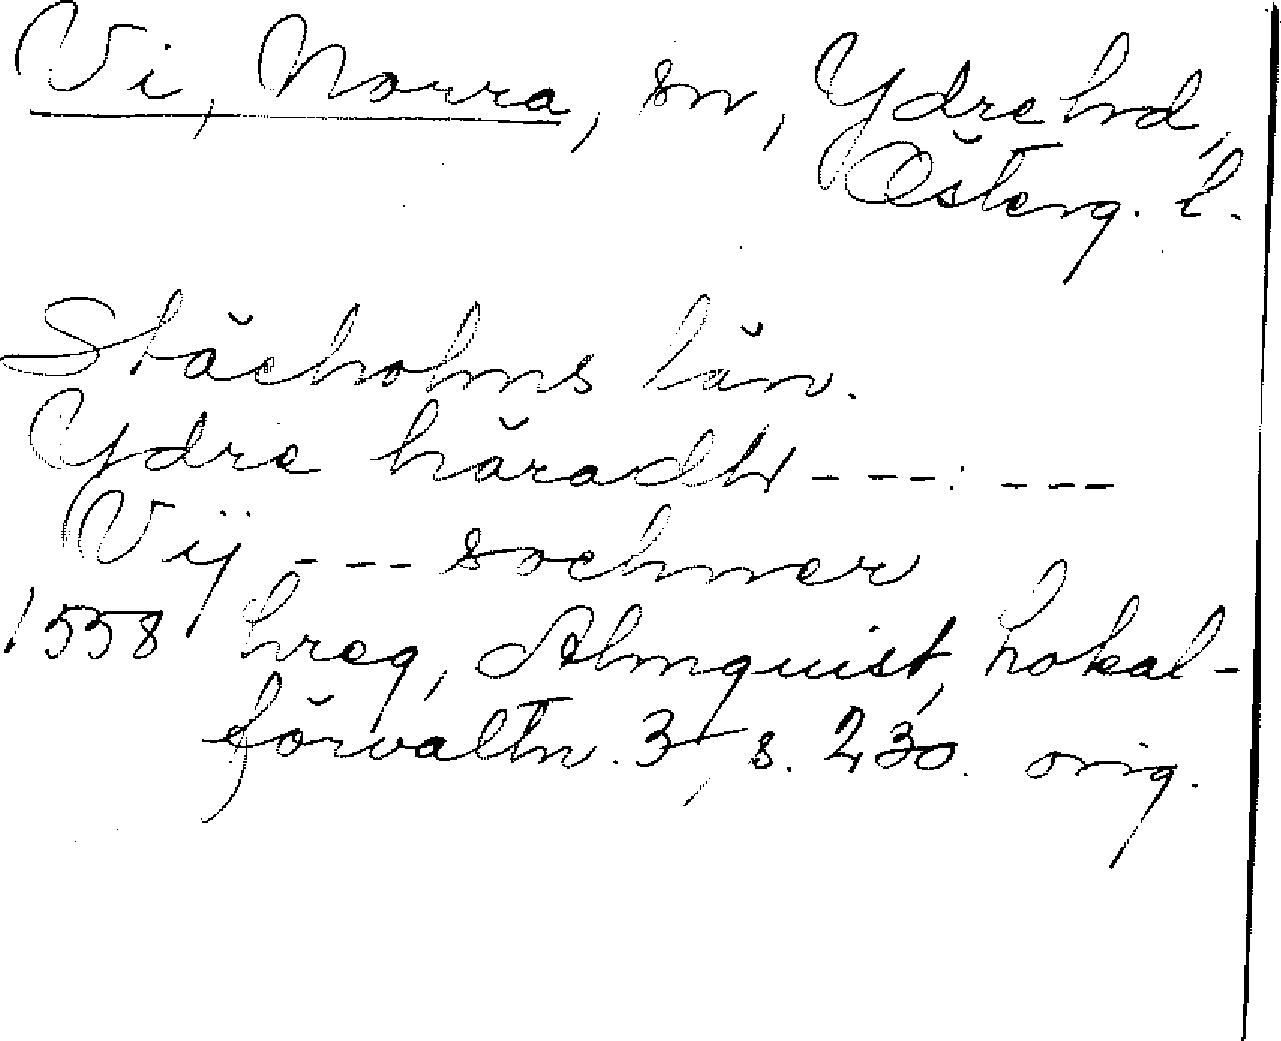 Vi, Norra, sn, Ydre hd,
Österg. l.
Stächolms län.
Ydre häradt ---: ---
Vÿ --- sochner
1558 hreg, Almquist, Lokal-
förvaltn. 3, s. 230. orig.